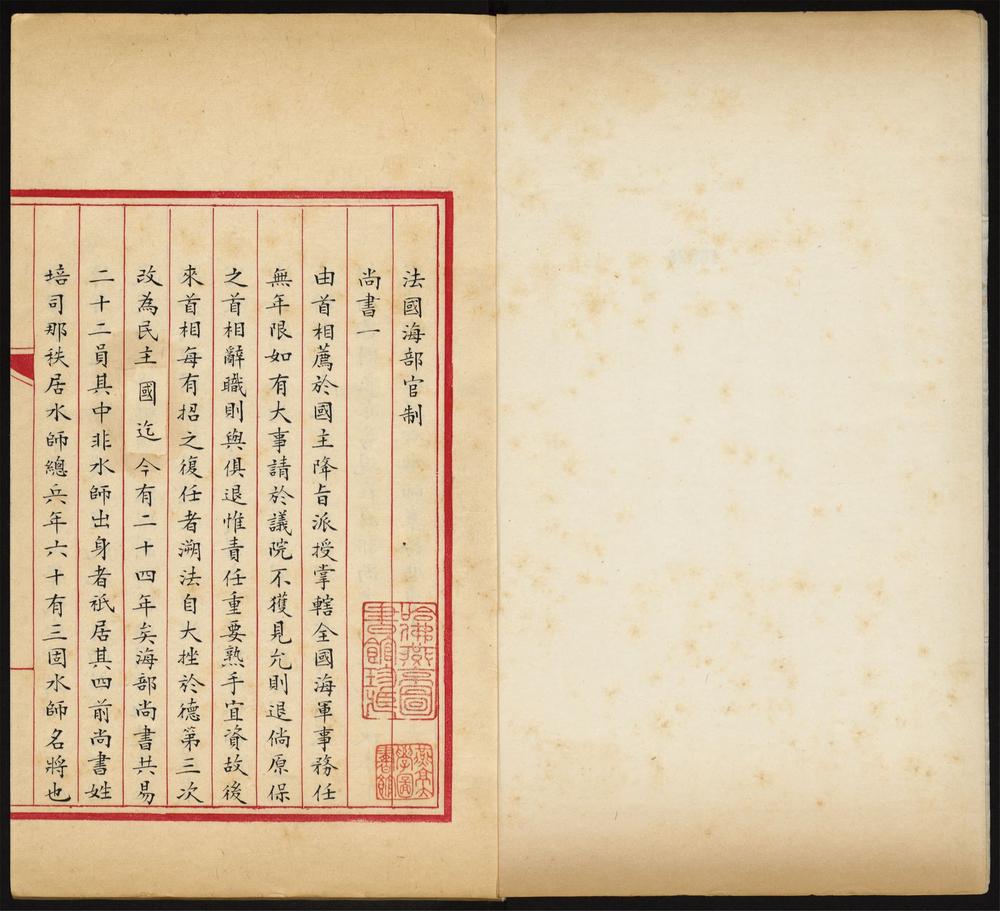 法國海部官制
尚書一
由首相薦於國主降旨派授掌轄全國海軍事務任
無年限如有大事請於議院不獲見允則退倘原保
之首相辭職則與俱退惟責任重要熟手宜資故後
來首相每有招之復任者溯法自大挫於德第三次
改為民主國迄今有二十四年矣海部尚書共易
二十二員其中非水師出身者祇居其四前尚書姓
培司那秩居水師總兵年六十有三固水師名將也
哈佛燕京圖書館珍藏